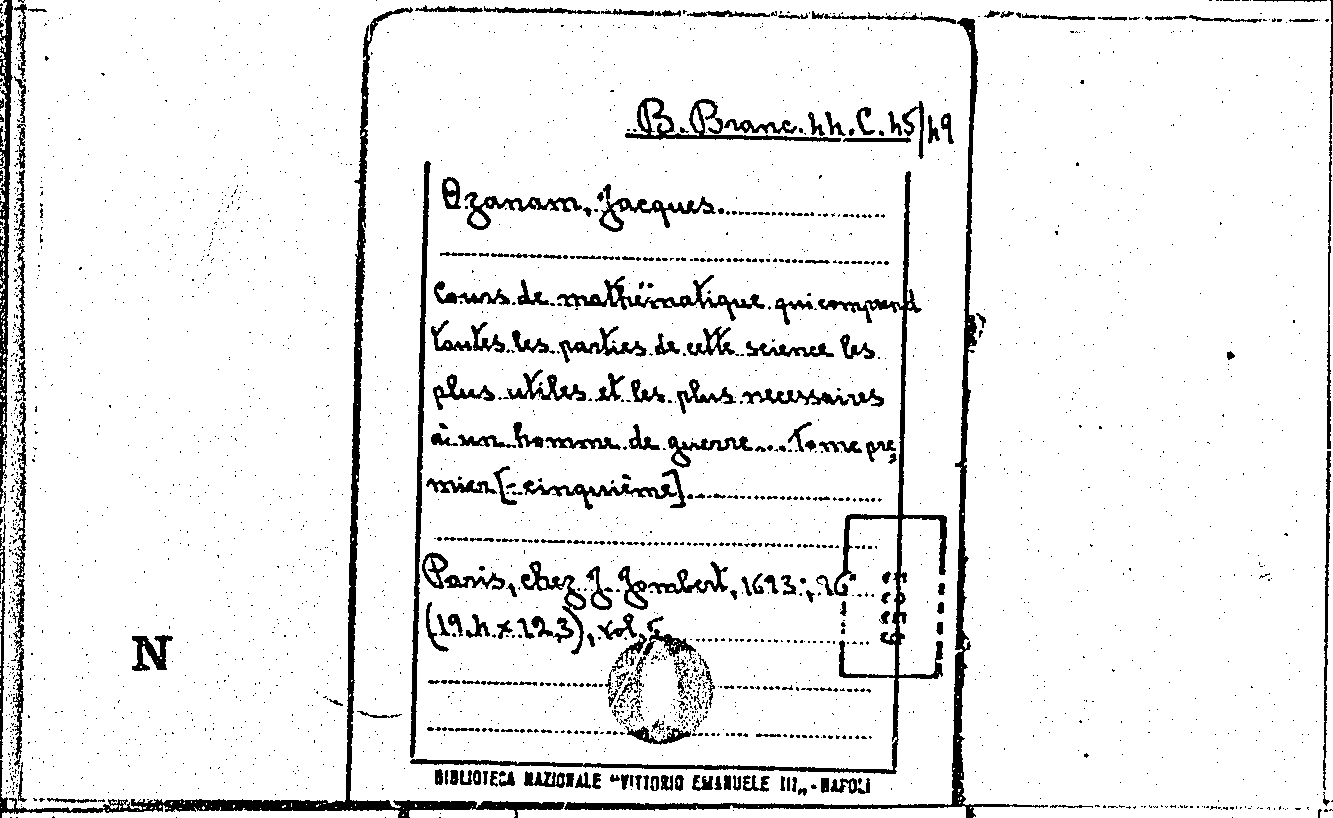 B. Branc. hh. C. 45/49
Ozanam, Jacques.
Cours de mathëmatique qui comprend
toutes les parties de cette science les
plus utiles et les plus necessaires
à un homme de guerre.... Tome pre,
mier [-cinquième].
Paris, chez J. Jombert, 1693;, 16°
(19.4 x 12,3), vol. 5.
N
BIBLIOTECA NAZIONALE "VITTORIO EMANUELE III„ - NAPOLI